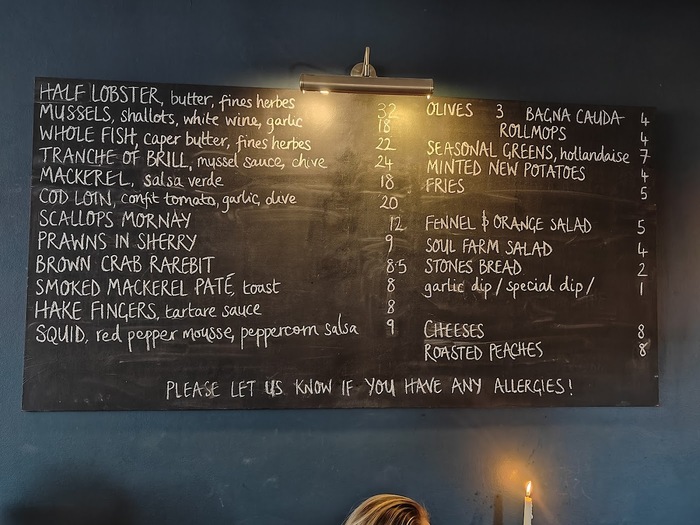 HALF LOBSTER, butter, fines herbes 32
MUSSELS, shallots, white wine, garlic 18
WHOLE FISH, caper butter, fines herbes 22
TRANCHE OF BRILL, mussel sauce, chive 24
MACKEREL, salsa verde 18
COD LOIN, confit tomato, garlic, olive 20
SCALLOPS MORNAY 12
PRAWNS IN SHERRY 9
BROWN CRAB RAREBIT 8.5
SMOKED MACKEREL PATÉ, toast 8
HAKE FINGERS, tartare sauce 8
SQUID, red pepper mousse, peppercorn salsa 9
OLIVES 3 BAGNA CAUDA 4
ROLLMOPS 4
SEASONAL GREENS, hollandaise 7
MINTED NEW POTATOES 4
FRIES 5
FENNEL & ORANGE SALAD 5
SOUL FARM SALAD 4
STONES BREAD 2
garlic dip / special dip / 1
CHEESES 8
ROASTED PEACHES 8
PLEASE LET US KNOW IF YOU HAVE ANY ALLERGIES!